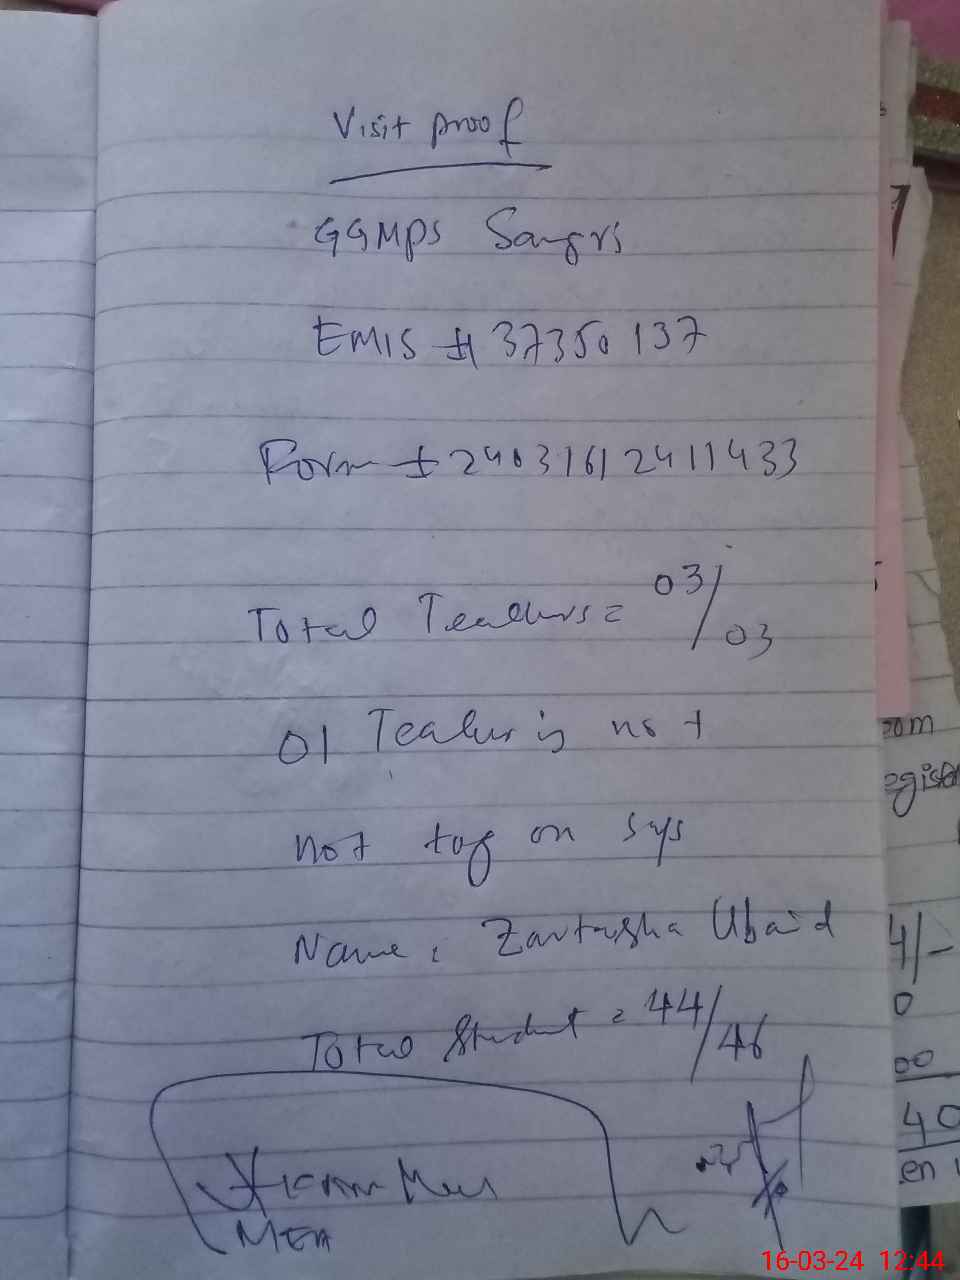 Visit proof
GGMPS Sangrs
EMIS # 37350137
Form # 24031612411433
Total Teachers = 03/03
01 Teacher is not
not tag on sys
Name : Zartasha Ubaid
Total Student = 44/46
MEA
oom
egister
4/-
0
00
40
en
16-03-24 12:44